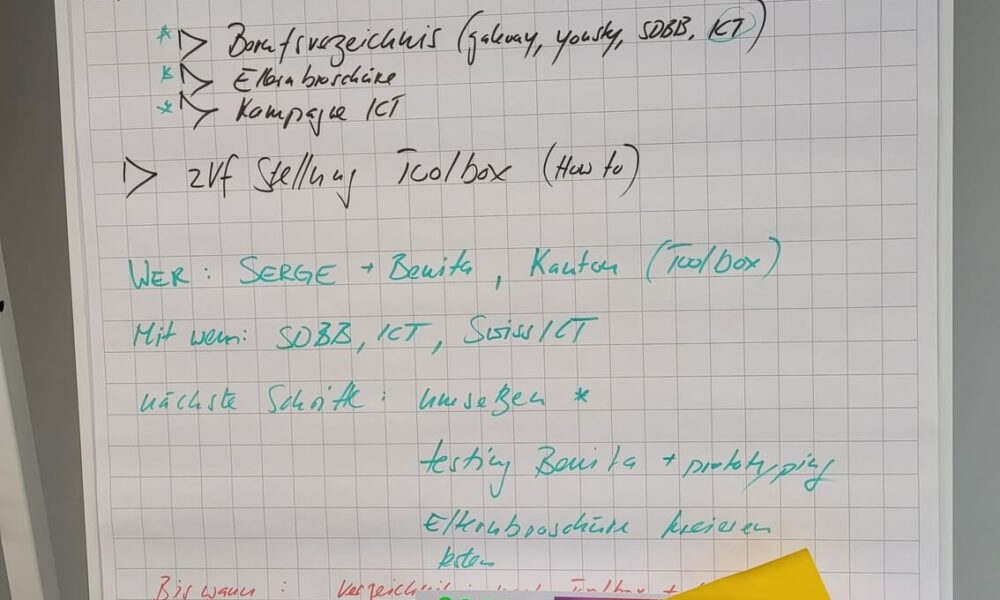 * > Berufsverzeichnis (gateway, yousty, SDBB, ICT)
* > Elternbroschüre
* > Kampagne ICT
> zVf Stellung Toolbox (How to)
WER : SERGE + Benita, Kanton (Toolbox)
Mit wem: SDBB, ICT, SwissICT
nächste Schritte : umsetzen *
testing Benita + prototyping
Elternbroschüre kreieren
testen
Bis wann :